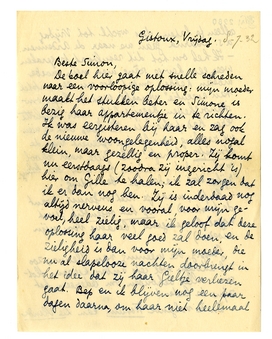 Gistoux, Vrijdag. 8.7.32
Beste Simon,
De boel hier gaat met snelle schreden
naar een voorloopige oplossing; mijn moeder
maakt het stukken beter en Simone is
bezig haar appartementje in te richten.
Ik was eergisteren bij haar en zag ook
de nieuwe woongelegenheid, alles nogal
klein maar gezellig en proper. Zij komt
nu eerstdaags (zoodra zij ingericht is)
hier om Gille te halen; ik zal zorgen dat
ik er dan nog ben. Zij is inderdaad nog
altijd nerveus en vooral voor mijn ge-
voel, heel zielig, maar ik geloof dat deze
oplossing haar veel goed zal doen, en de
zieligheid is dan voor mijn moeder, die
nu al slapelooze nachten doorbrengt in
het idee dat zij haar Gieltje verliezen
gaat. Bep en ik blijven nog een paar
dagen daarna, om haar niet heelemaal